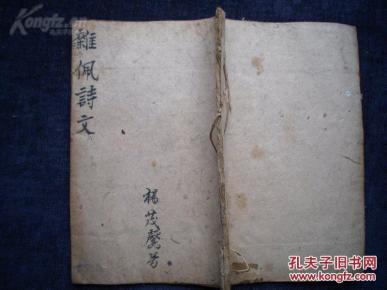 雜佩詩文
楊茂馨
Kongfz.com
孔夫子旧书网
www.kongfz.com